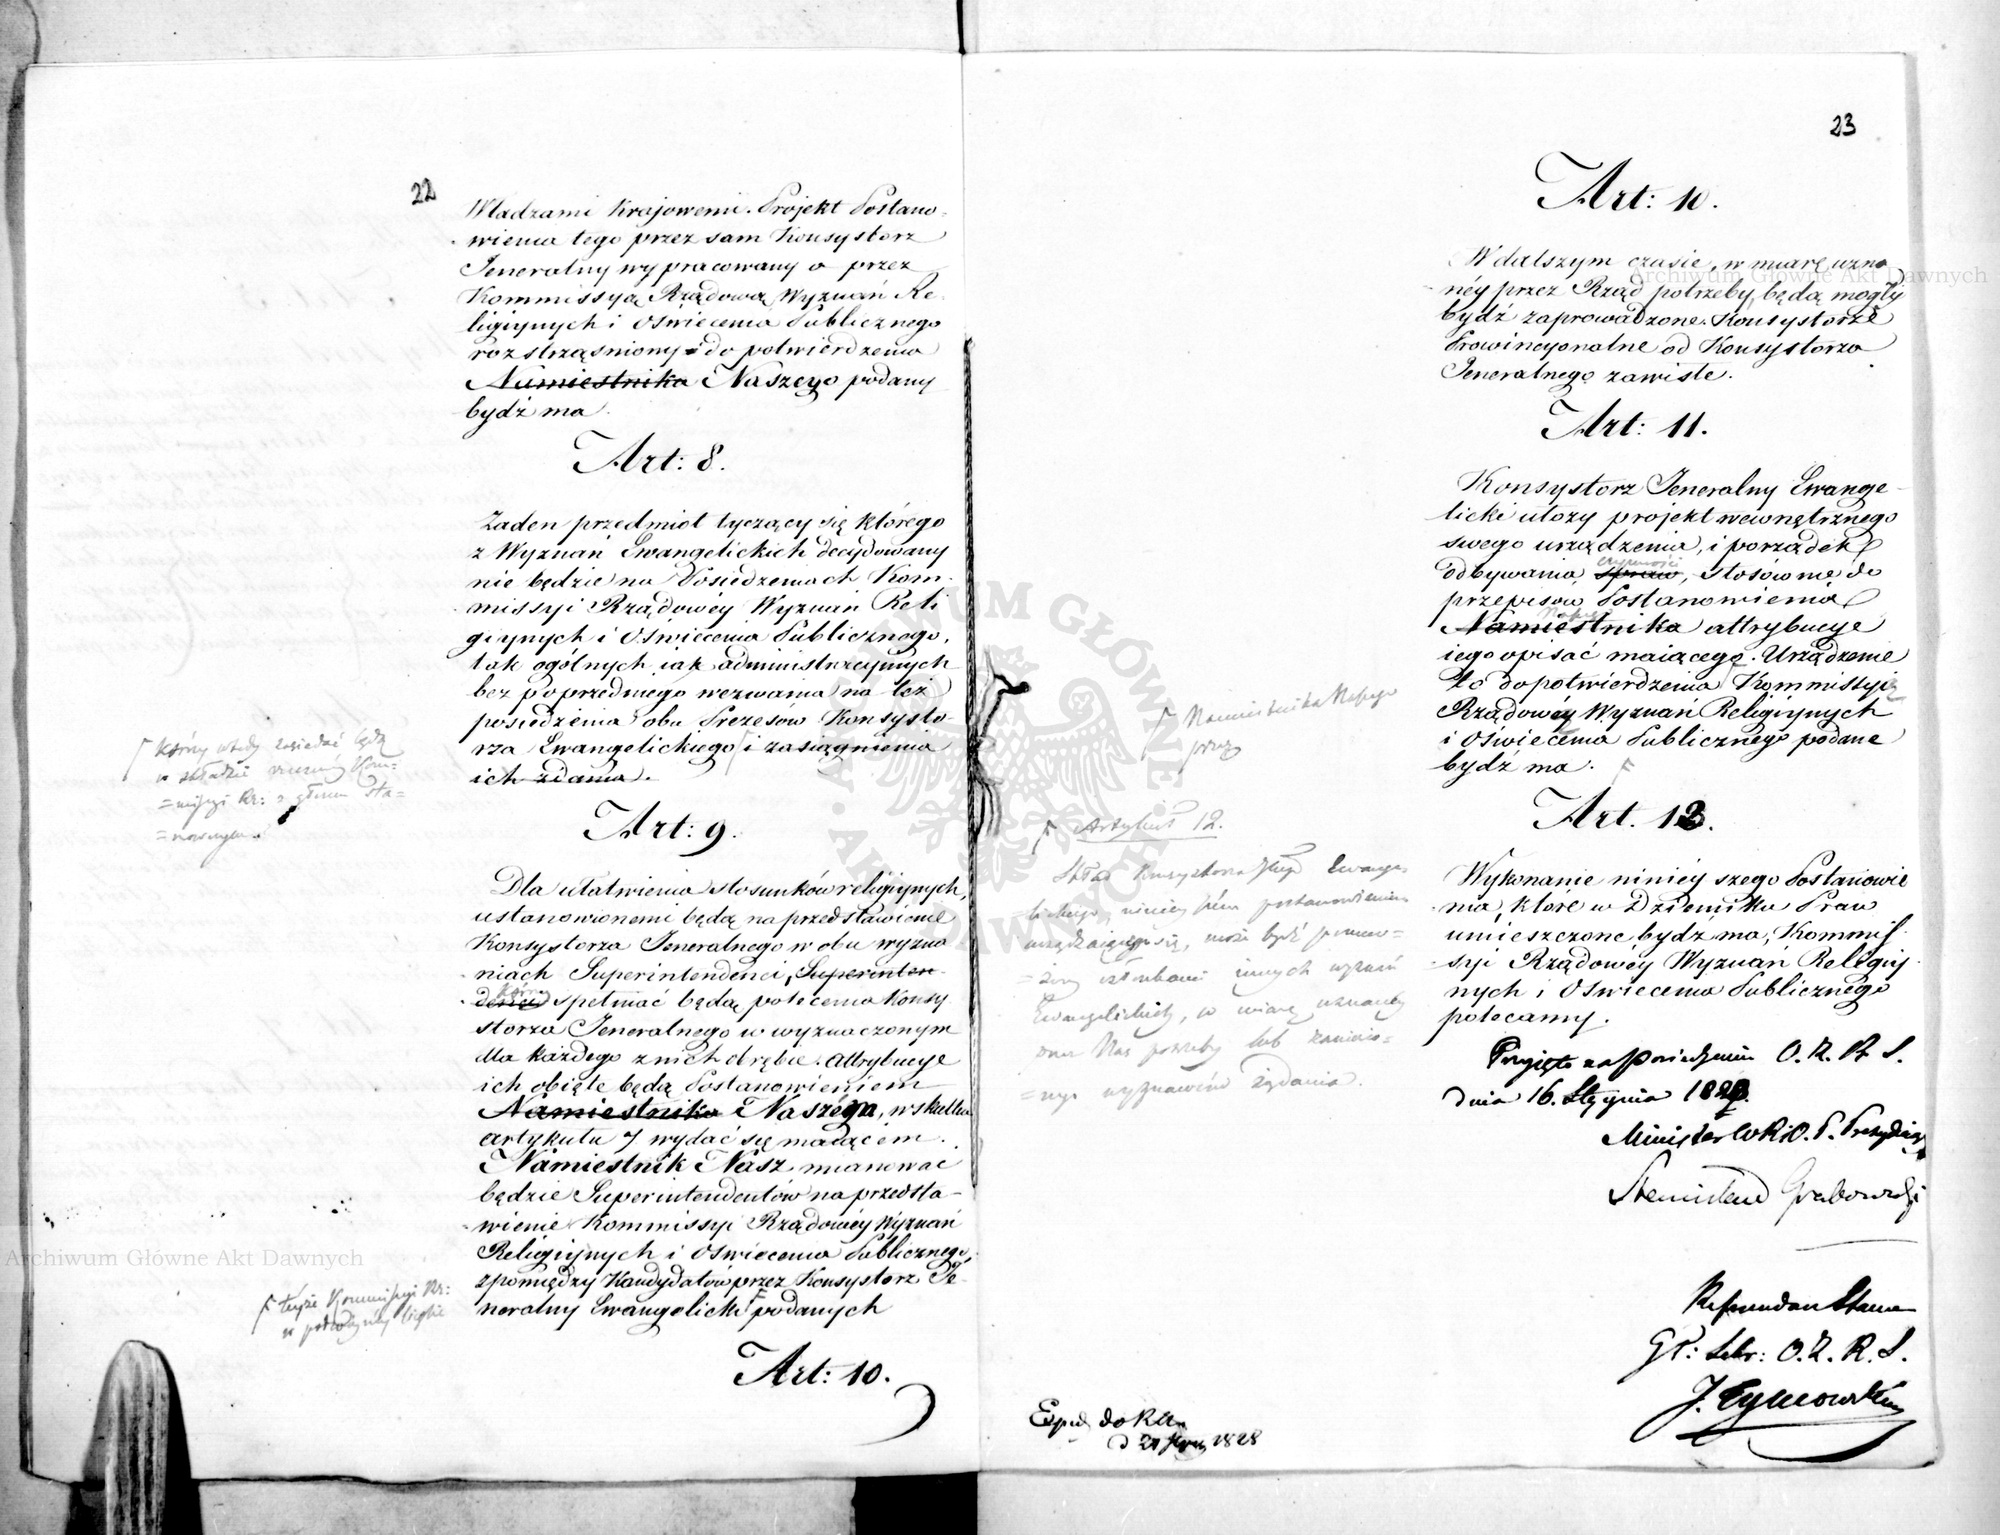 22
Władzami Krajowemi. Projekt Postano-
wienia tego przez sam Konsystorz
Jeneralny wypracowany a przez
Kommissyą Rządową Wyznań Re-
ligiynych i Oświecenia Publicznego
rozstrząsniony i do potwierdzenia
Namiestnika Naszego podany
bydź ma.
Art: 8.
Żaden przedmiot tyczący się którego
z Wyznań Ewangelickich decydowany
nie będzie na Posiedzeniach Kom-
missyi Rządowéy Wyznań Reli
giynych i Oświecenia Publicznego,
tak ogólnych iak administracyinych
bez poprzedniego wezwania na też
posiedzenia obu Prezesów Konsysto-
rza Ewangelickiego i zasiągnienia
ich zdania.
którzy wtedy zasiedać będą
w składzie Kom-
=missyi Rz: z głosem sta=
=nowczym.
Art: 9.
Dla ułatwienia stosunków religiynych,
ustanowionemi będą na przedstawienie
Konsystorza Jeneralnego w obu wyzna-
niach Superintendenci, Superinten-
denci którzy spełniać będą polecenia Konsy
storza Jeneralnego w wyznaczonym
dla każdego z nich obrębie. Attrybucye
ich obięte będą Postanowieniem
Namiestnika Naszém, w skutku
artykułu 7 wydać się maiącém.
Namiestnik Nasz mianować
będzie Superintendentów na przedsta-
wienie Kommissyi Rządowéy Wyznań
Religiynych i Oświecenia Publicznego,
z pomiędzy Kandydatów przez Konsystorz Je-
neralny Ewangelicki podanych
teyże Kommissyi Rz:
w podwóynéy liczbie
Art: 10.
23
Art: 10.
W dalszym czasie, w miarę uzna
néy przez Rząd potrzeby, będą mogły
bydź zaprowadzone Konsystorze
Prowincyonalne od Konsystorza
Jeneralnego zawisłe.
Art: 11.
Konsystorz Jeneralny Ewange-
licki ułoży projekt wewnętrznego
swego urządzenia, i porządek
odbywania spraw czynności, stosównie do
przepisów Postanowienia
Namiestnika Naszego attrybucye
iego opisać maiącego. Urządzenie
to do potwierdzenia Kommissyi
Rządowéy Wyznań Religiynych
i Oświecenia Publicznego podane
bydź ma.
Namiestnika Naszego
przez
Artykuł 12.
Skład Konsystorza Ewange-
lickiego, ninieyszém postanowieniem
urządzaiącego się, może bydź pomno=
=żony członkami innych wyznań
Ewangelickich, w miarę uznanéy
przez Nas potrzeby lub
=nego wyznawców żądania.
Art. 13.
Wykonanie ninieyszego Postanowie
nia, które w Dzienniku Praw
umieszczone bydź ma, Kommis-
syi Rządowéy Wyznań Religiy-
nych i Oświecenia Publicznego
polecamy.
Przyięto na Posiedzeniu O. Z. R. S.
dnia 16. Stycznia 1828.
Minister W R i O. P. Prezyduiący
Stanisław Grabowski
Referendarz Stanu
Gł: Sekr: O. Z. R. S.
J. Tymowski
Archiwum Główne Akt Dawnych
Archiwum Główne Akt Dawnych
ARCHIWUM GŁÓWNE AKT DAWNYCH